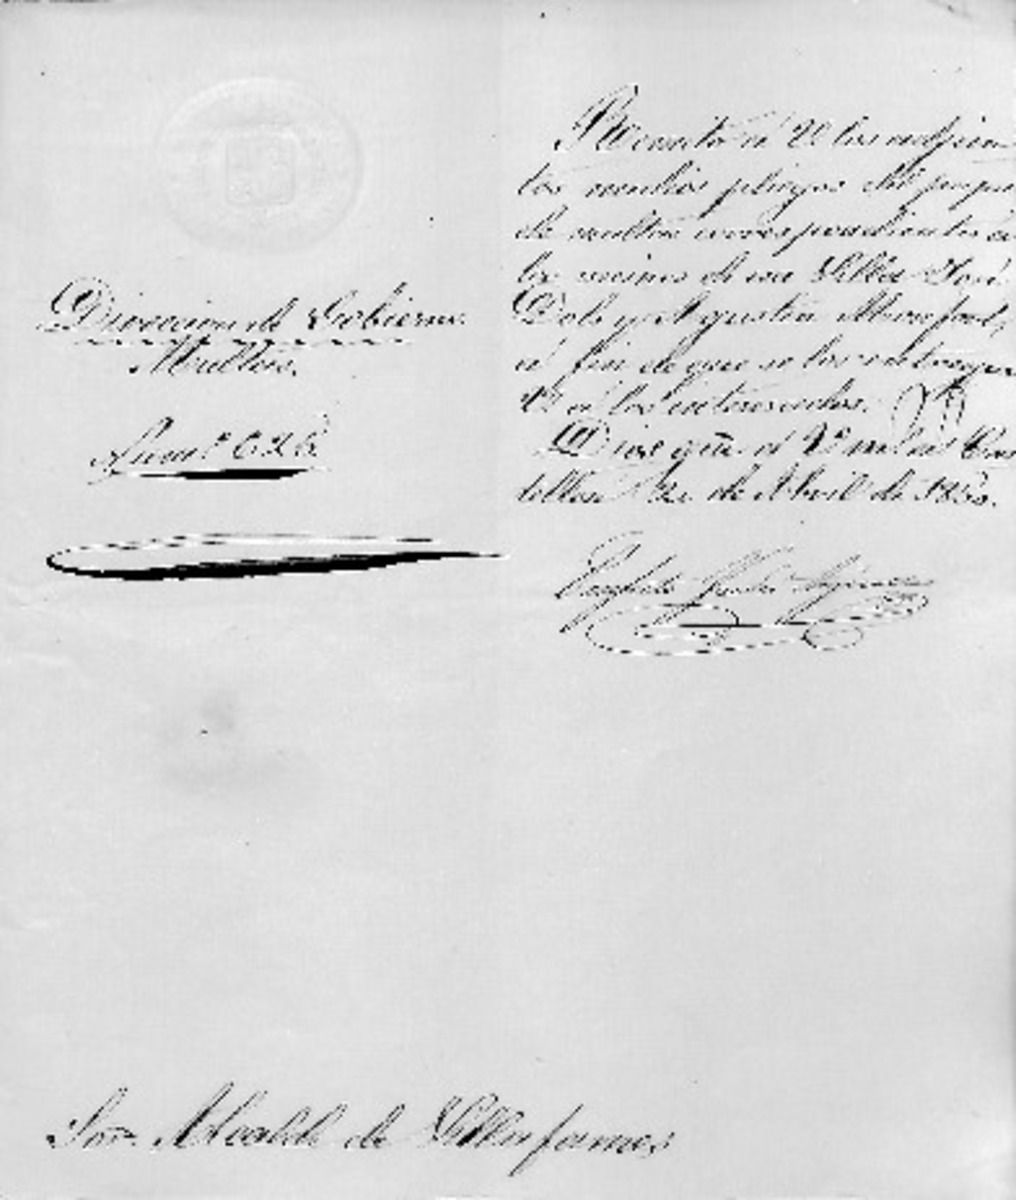 Direccion de Gobierno.
Multas.
Num.º 626
Remito á V. los adjun
tos medios pliegos del pape
de multas correspondientes a
los vecinos de esa Villa José
Dols y Agustin
á fin de que se los entregue
V. á los interesados.
Dios gũe á V. m.s a.s Cas
tellon 2 de Abril de 185
Sor. Alcalde de Villafames